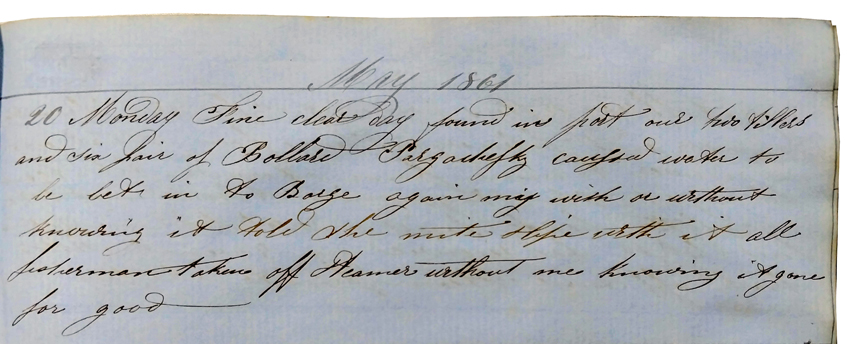 May 1861
20 Monday Fine clear day found in port our two tillers
and six pair of Bollard caused water to
be let in to Barge again me with or without
knowing it told she with it all
fisherman taken off Steamer without me knowing it gone
for good